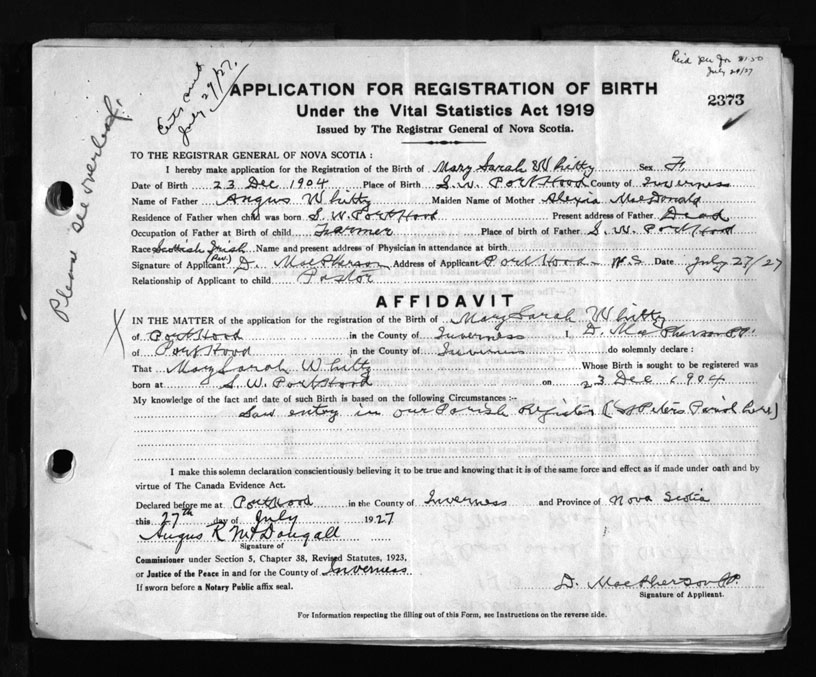 Paid see for $1.50
July 29/27
July 29/27.
APPLICATION FOR REGISTRATION OF BIRTH
2373
Under the Vital Statistics Act 1919
Issued by The Registrar General of Nova Scotia.
Please see overleaf.
TO THE REGISTRAR GENERAL OF NOVA SCOTIA :
I hereby make application for the Registration of the Birth of Mary Sarah Whitty Sex F.
Date of Birth 23 Dec 1904 Place of Birth S.W. Port Hood County of Inverness
Name of Father Angus Whitty Maiden Name of Mother Alexia MacDonald
Residence of Father when child was born S.W. Port Hood Present address of Father Dead
Occupation of Father at Birth of child Farmer Place of birth of Father S.W. Port Hood
Race Scottish Irish Name and present address of Physician in attendance at birth
Signature of Applicant (Rev.) D. MacPherson Address of Applicant Port Hood - N.S Date July 27/27
Relationship of Applicant to child Pastor
AFFIDAVIT
IN THE MATTER of the application for the registration of the Birth of Mary Sarah Whitty
of Port Hood in the County of Inverness I, D. MacPherson P.P.
of Port Hood in the County of Inverness do solemnly declare :
That Mary Sarah Whitty Whose Birth is sought to be registered was
born at S.W. Port Hood on 23 Dec 1904
My knowledge of the fact and date of such Birth is based on the following Circumstances :-
Saw entry in our Parish Register (St Peters Parish here)
I make this solemn declaration conscientiously believing it to be true and knowing that it is of the same force and effect as if made under oath and by
virtue of The Canada Evidence Act.
Declared before me at Port Hood in the County of Inverness and Province of Nova Scotia
this 27th day of July 1927
Angus R McDougall
Signature of
Commissioner under Section 5, Chapter 38, Revised Statutes, 1923,
or Justice of the Peace in and for the County of Inverness
If sworn before a Notary Public affix seal.
D. MacPherson P.P.
Signature of Applicant.
For Information respecting the filling out of this Form, see Instructions on the reverse side.